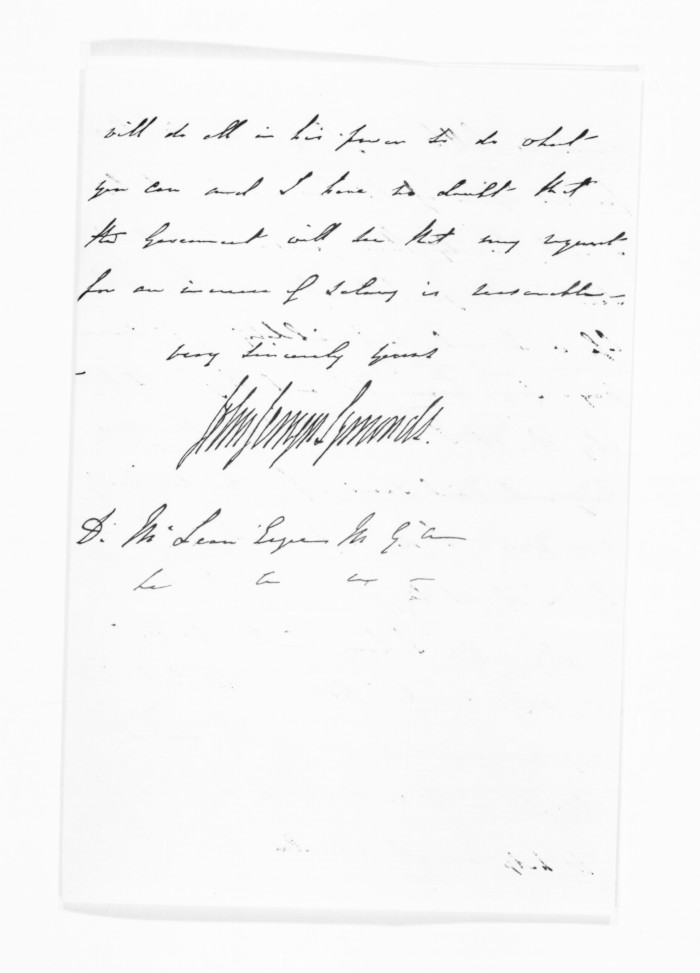 will do all in his power to do what
you can and I have no doubt that
the Government will see that my request
for an increase of salary is reasonable —
very sincerely yours
John Jermyn Symonds.
D. McLean Esquire M G A
&c &c &c